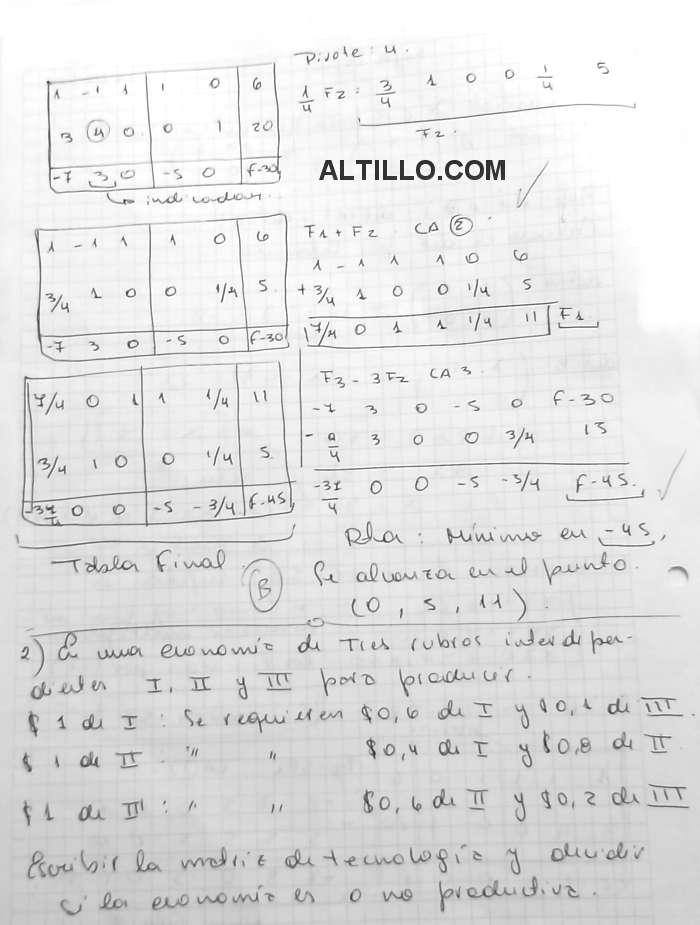 Pivote: 4.
1 -1 1 1 0 6
3 4 0 0 1 20
-7 3 0 -5 0 f-30
↳ indicador
1/4 F2 : 3/4 1 0 0 1/4 5
F2.
ALTILLO.COM
1 -1 1 1 0 6
3/4 1 0 0 1/4 5
-7 3 0 -5 0 f-30
F1 + F2 CA 2
1 -1 1 1 0 6
+ 3/4 1 0 0 1/4 5
7/4 0 1 1 1/4 11 F1
7/4 0 1 1 1/4 11
3/4 1 0 0 1/4 5
-37/4 0 0 -5 -3/4 f-45
F3 - 3F2 CA 3.
-7 3 0 -5 0 f-30
- 9/4 3 0 0 3/4 15
-37/4 0 0 -5 -3/4 f-45.
Tabla Final.
B
Rta : Mínimo en -45,
Se alcanza en el punto.
(0, 5, 11).
2) En una economía de Tres rubros interdepen-
dientes I, II y III para producir.
$ 1 de I : Se requieren $0,6 de I y $0,1 de III
$ 1 de II " " $0,4 de I y $0,8 de II
$ 1 de III : " " $0,6 de II y $0,2 de III
Escribir la matriz de tecnología y decidir
si la economía es o no productiva.